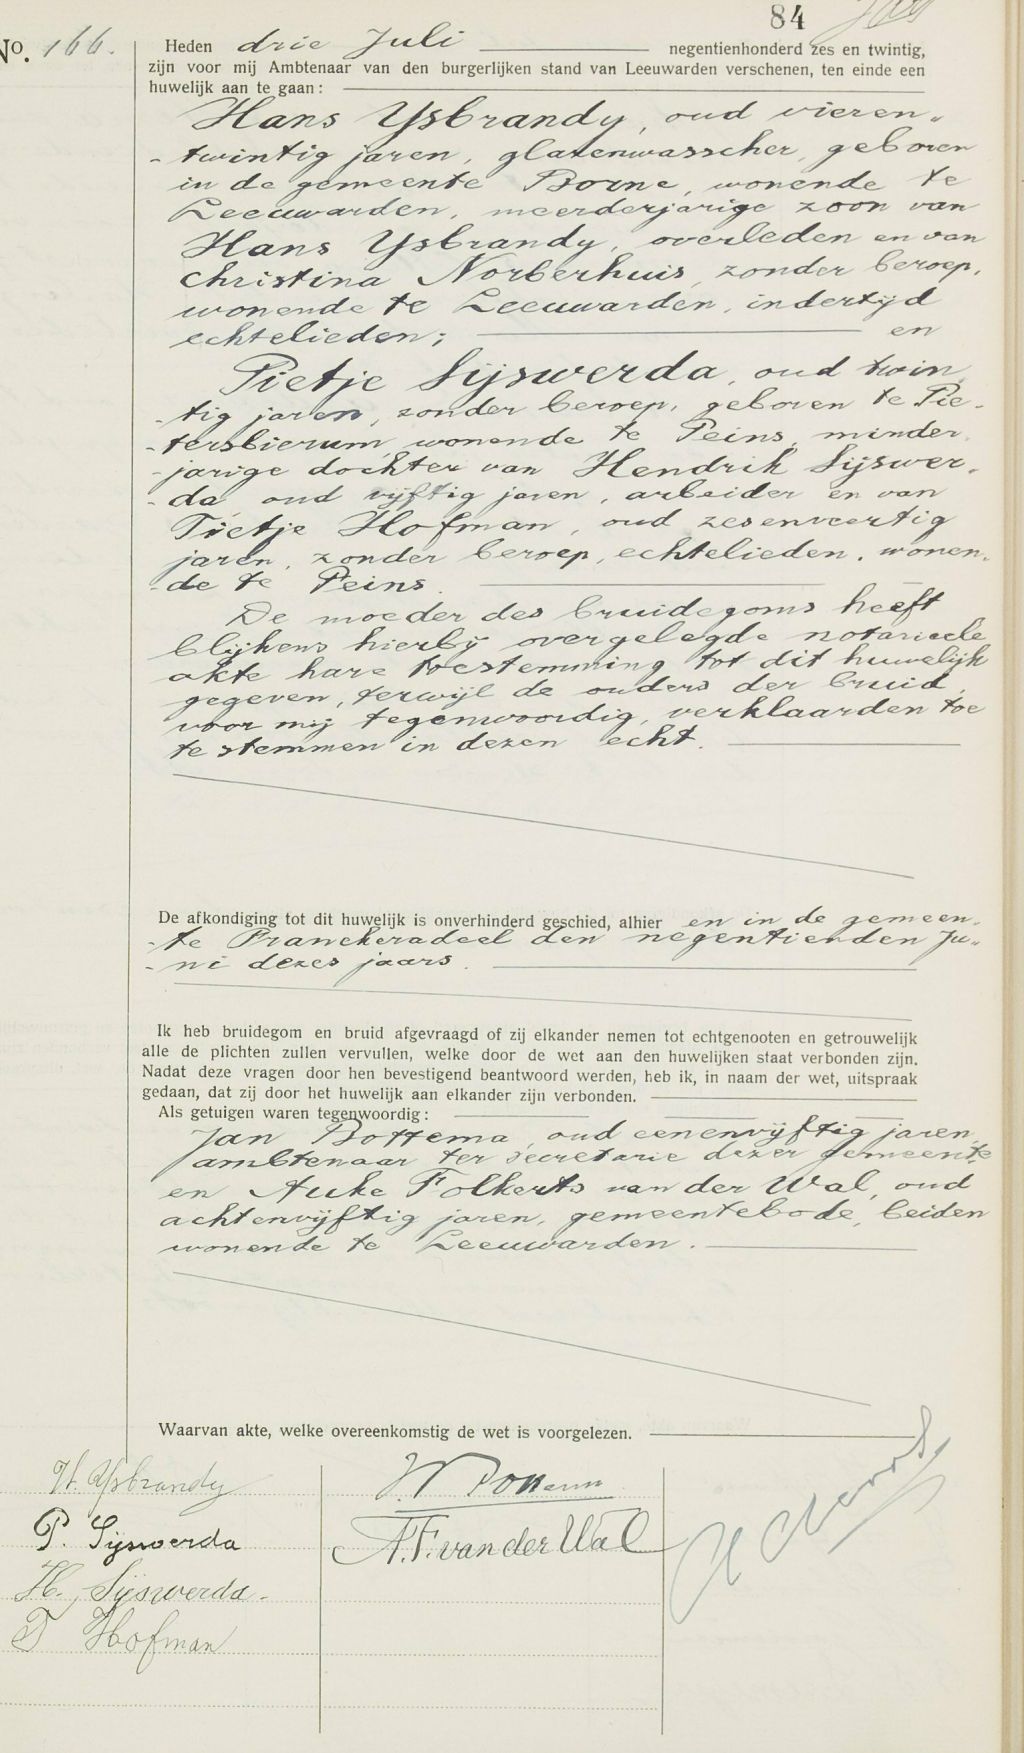 84
No. 166.
Heden drie Juli negentienhonderd zes en twintig,
zijn voor mij Ambtenaar van den burgerlijken stand van Leeuwarden verschenen, ten einde een
huwelijk aan te gaan:
Hans Ysbrandy, oud vieren-
-twintig jaren, glazenwasscher, geboren
in de gemeente Borne, wonende te
Leeuwarden, meerderjarige zoon van
Hans Ysbrandy, overleden en van
Christina Norberhuis, zonder beroep,
wonende te Leeuwarden, indertijd
echtelieden; en
Pietje Sijswerda, oud twin-
-tig jaren, zonder beroep, geboren te Pie-
-tersbierum, wonende te Peins, minder-
-jarige dochter van Hendrik Sijswer-
-da, oud vijftig jaren, arbeider en van
Tietje Hofman, oud zesenveertig
jaren, zonder beroep, echtelieden, wonen-
-de te Peins.
De moeder des bruidegoms heeft
blijkens hierbij overgelegde notarieele
akte hare toestemming tot dit huwelijk
gegeven, terwijl de ouders der bruid,
voor mij tegenwoordig, verklaarden toe
te stemmen in dezen echt.
De afkondiging tot dit huwelijk is onverhinderd geschied, alhier en in de gemeen-
-te Franekeradeel den negentienden Ju-
-ni dezes jaars.
Ik heb bruidegom en bruid afgevraagd of zij elkander nemen tot echtgenooten en getrouwelijk
alle de plichten zullen vervullen, welke door de wet aan den huwelijken staat verbonden zijn.
Nadat deze vragen door hen bevestigend beantwoord werden, heb ik, in naam der wet, uitspraak
gedaan, dat zij door het huwelijk aan elkander zijn verbonden.
Als getuigen waren tegenwoordig:
Jan Bottema, oud eenenvijftig jaren,
ambtenaar ter secretarie dezer gemeente
en Auke Folkerts van der Wal, oud
achtenvijftig jaren, gemeentebode, beiden
wonende te Leeuwarden.
Waarvan akte, welke overeenkomstig de wet is voorgelezen.
H. Ysbrandy
P. Sijswerda
H. Sijswerda.
T Hofman
A.F. van der Wal